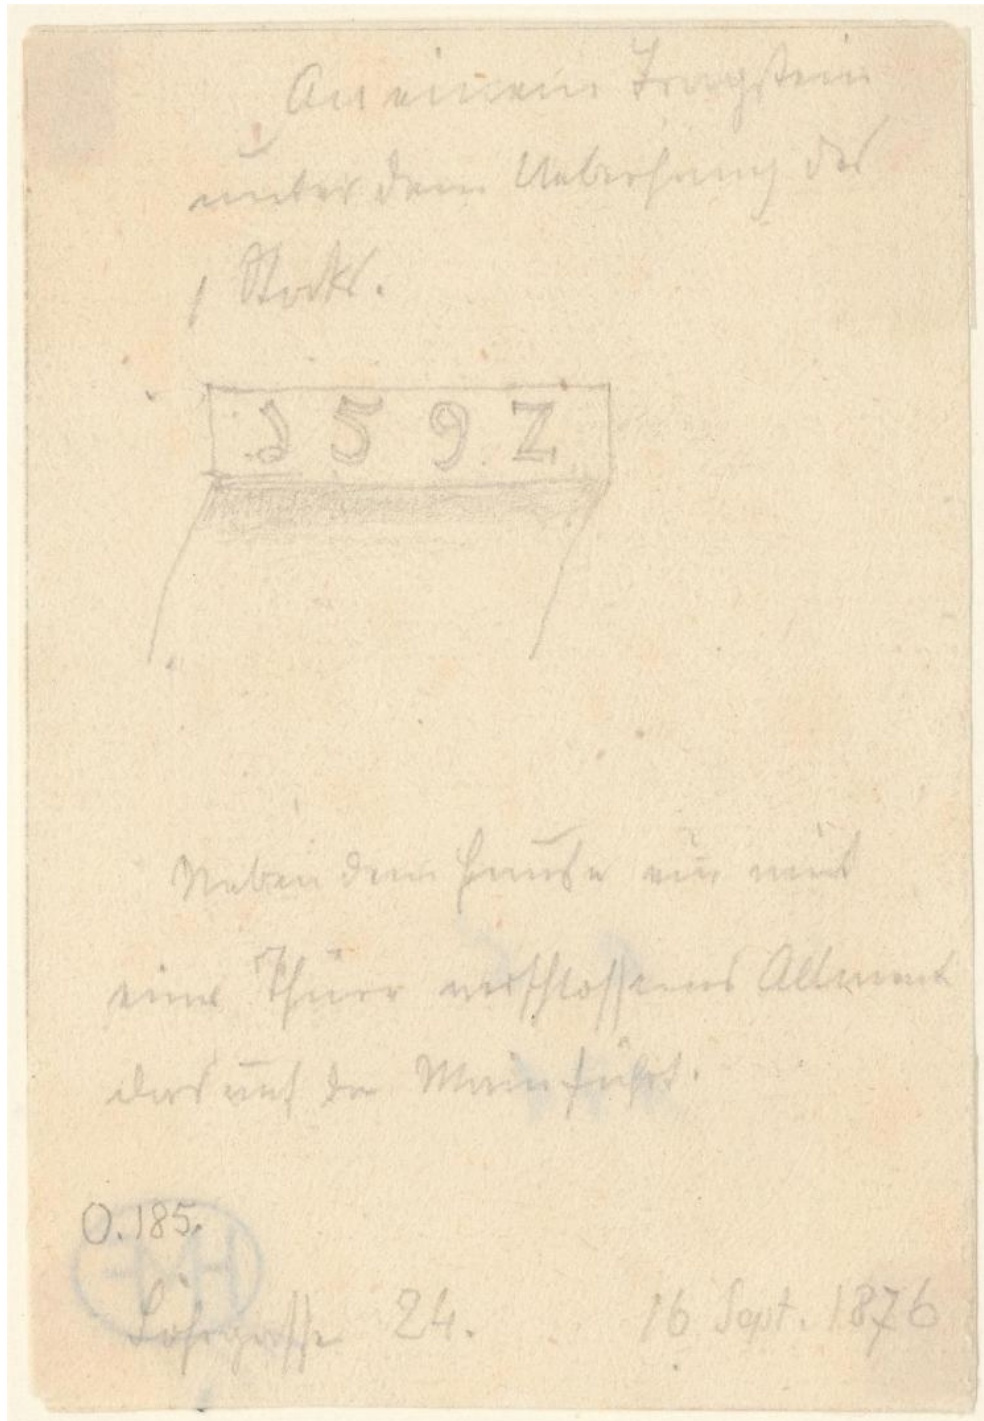 An einem Tragstein
unter dem Ueberhang des
1 Stocks.
1592
Neben dem Hause ein mit
einer Thüre verschlossenes Allment
das auf den Main führt.
O.185.
HM
Löhrgasse 24. 16 Sept. 1876